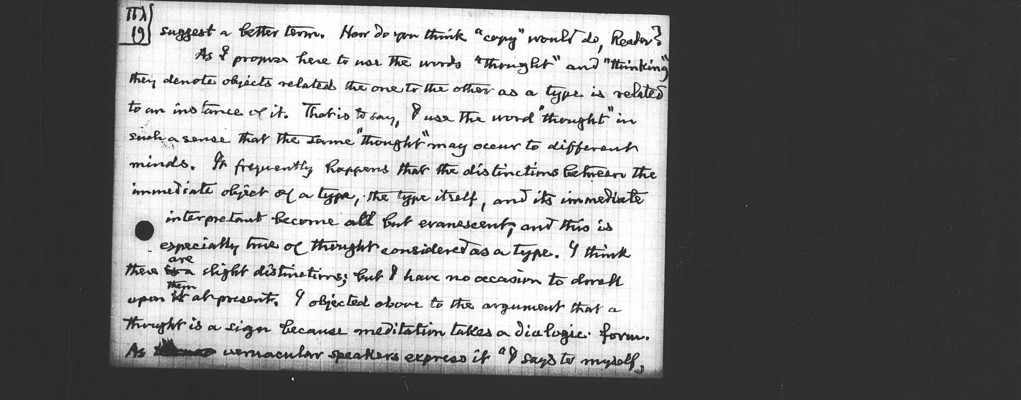 Πλ
19
suggest a better term. How do you think "copy" would do, Reader?
As I propose here to use the words "thought" and "thinking"
they denote objects related the one to the other as a type is related
to an instance of it. That is to say, I use the word "thought" in
such a sense that the same "thought" may occur to different
minds. It frequently happens that the distinctions between the
immediate object of a type, the type itself, and its immediate
interpretant become all but evanescent; and this is
especially true of thought considered as a type. I think
there are slight distinctions; but I have no occasion to dwell
upon them at present. I objected above to the argument that a
thought is a sign because meditation takes a dialogic form.
As vernacular speakers express it "I says to myself,